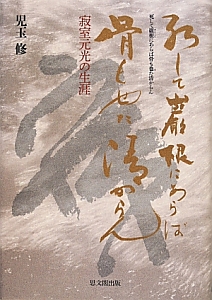 死して巖根にあらば
骨も也た清からん
死して巌根にあらば骨も也た清からん
寂室元光の生涯
児玉 修
思文閣出版